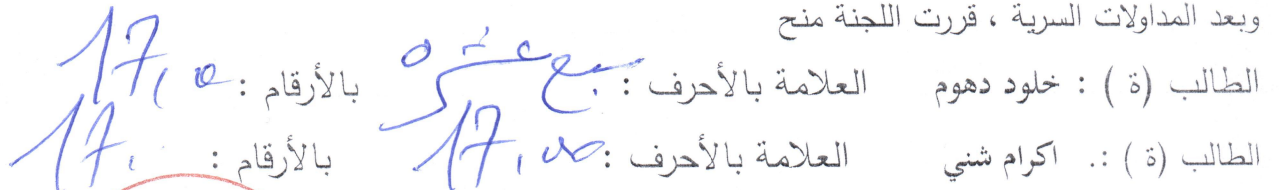 وبعد المداولات السرية ، قررت اللجنة منح
الطالب (ة ) : خلود دهوم العلامة بالأحرف : سبع عشرة بالأرقام : 17,0
الطالب (ة ) :. اكرام شني العلامة بالأحرف : 17,00 بالأرقام : 17.